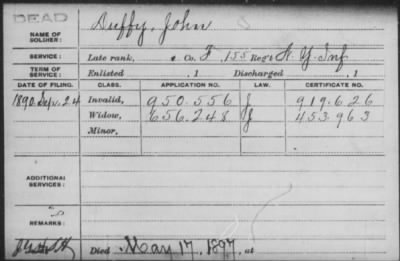 DEAD
NAME OF SOLDIER: Duffy, John
SERVICE: Late rank, Co. F, 155 Reg't N. Y. Inf
TERM OF SERVICE: Enlisted , 1 Discharged , 1
DATE OF FILING. CLASS. APPLICATION NO. LAW. CERTIFICATE NO.
1890, Sep. 24 Invalid, 950.556 J 919.626
Widow, 656.248 J 453.963
Minor,
ADDITIONAL SERVICES:
REMARKS:
Died May 17, 1897, at